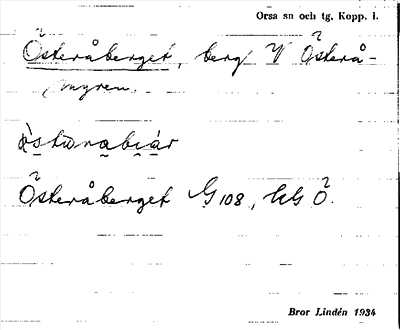 Orsa sn och tg, Kopp. l.
Österåberget, berg V Österå-
myren.
Österåberget G 108, UG Ö.
Bror Lindén 1934